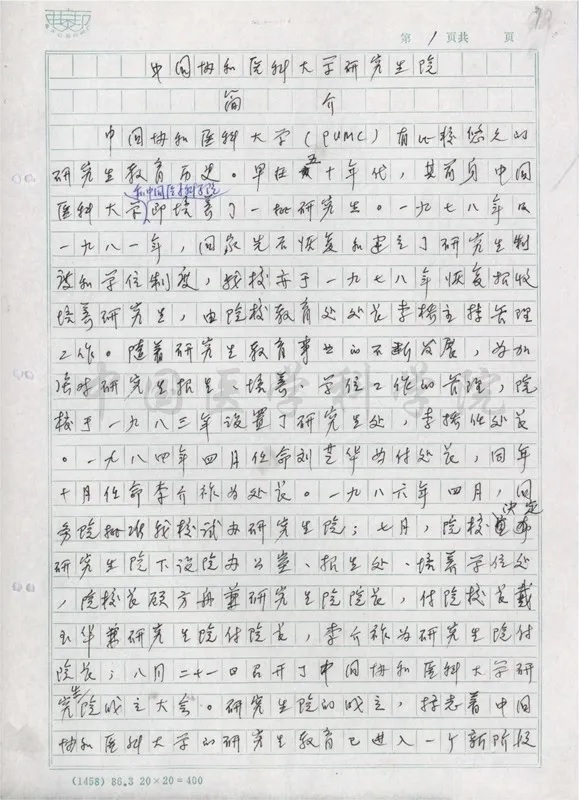 第 1 页共 页
中国协和医科大学研究生院
简 介
中国协和医科大学(PUMC)有比较悠久的
研究生教育历史。早在五十年代,其前身中国
和中国医学科学院
医科大学即培养了一批研究生。一九七八年及
一九八一年,国家先后恢复和建立了研究生制
度和学位制度,我校亦于一九七八年恢复招收
培养研究生,由院校教育处处长李格主持管理
工作。随着研究生教育事业的不断发展,为加
强对研究生招生、培养、学位工作的管理,院
校于一九八三年设置了研究生处,李格任处长
。一九八四年四月任命刘芝华为付处长,同年
十月任命李介祚为处长。一九八六年四月,国
务院批准我校试办研究生院;七月,院校决定
研究生院下设院办公室、招生处、培养学位处
,院校长顾方舟兼研究生院院长,付院校长戴
玉华兼研究生院付院长,李介祚为研究生院付
院长;八月二十一日召开了中国协和医科大学研
究生院成立大会。研究生院的成立,标志着中国
协和医科大学的研究生教育已进入一个新阶段
中国医学科学院
(1458) 86.3 20×20=400